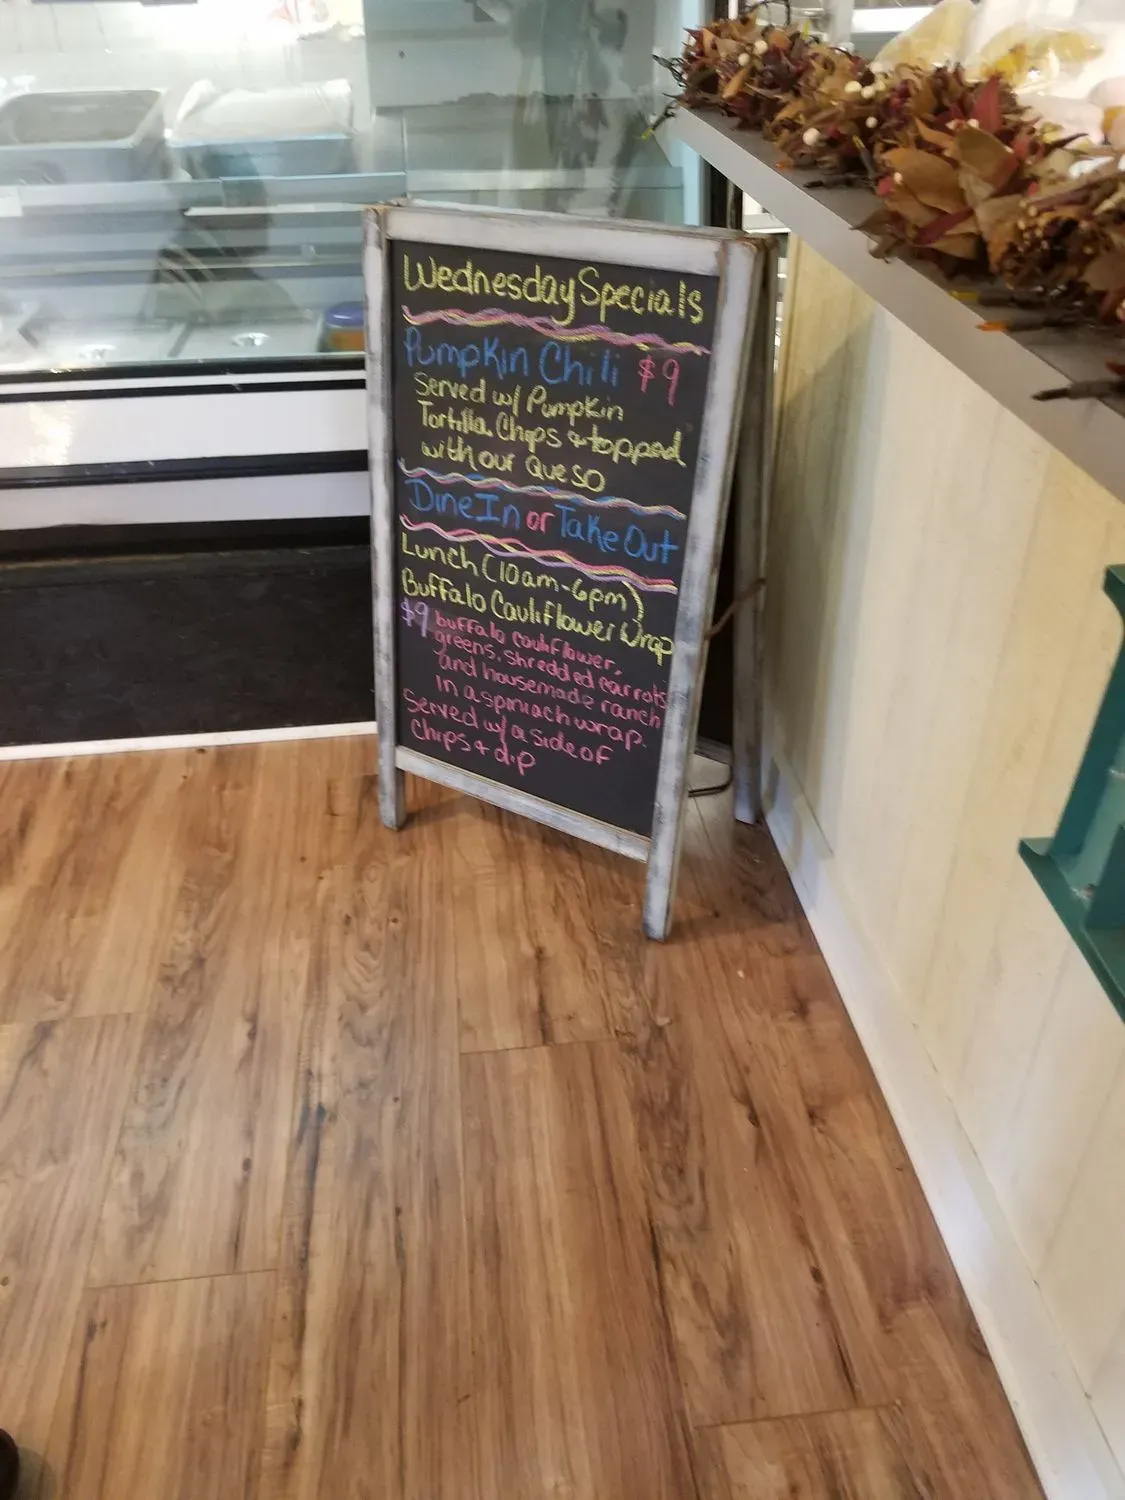 Wednesday Specials
Pumpkin Chili $9
Served w/ Pumpkin
Tortilla Chips & topped
with our Queso
Dine In or Take Out
Lunch (10am-6pm)
Buffalo Cauliflower Wrap
$9 buffalo cauliflower,
greens, shredded carrots
and housemade ranch
in a spinach wrap.
Served w/ a side of
Chips & dip